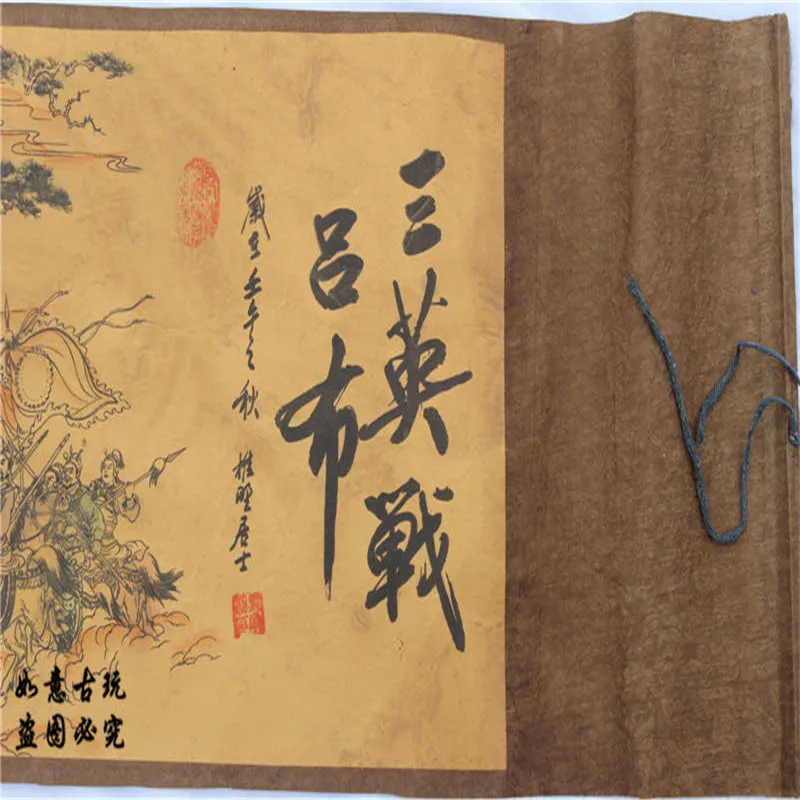 三英戰
吕布
歲在壬午之秋
居士
如意古玩
盗图必究